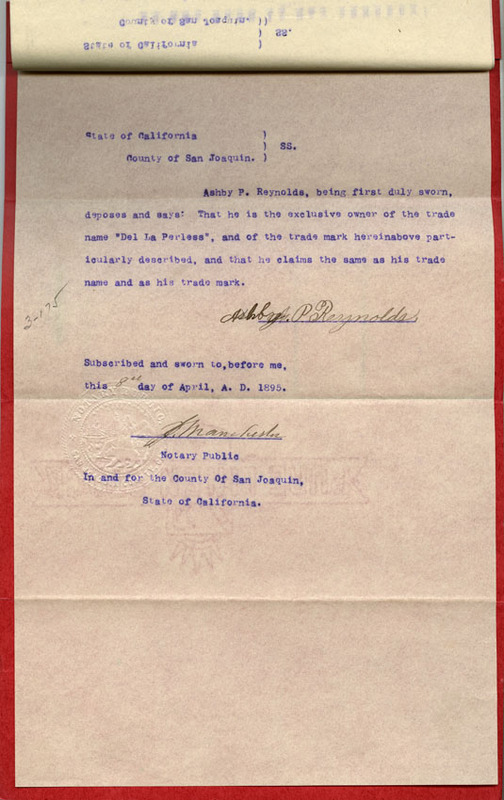 State of California )
) SS.
County of San Joaquin. )
Ashby P. Reynolds, being first duly sworn,
deposes and says: That he is the exclusive owner of the trade
name "Del La Perless", and of the trade mark hereinabove part-
icularly described, and that he claims the same as his trade
name and as his trade mark.
3-175
Ashby P. Reynolds
Subscribed and sworn to,before me,
this 8th day of April, A. D. 1895.
J. Manchester
Notary Public
In and for the County Of San Joaquin,
State of California.